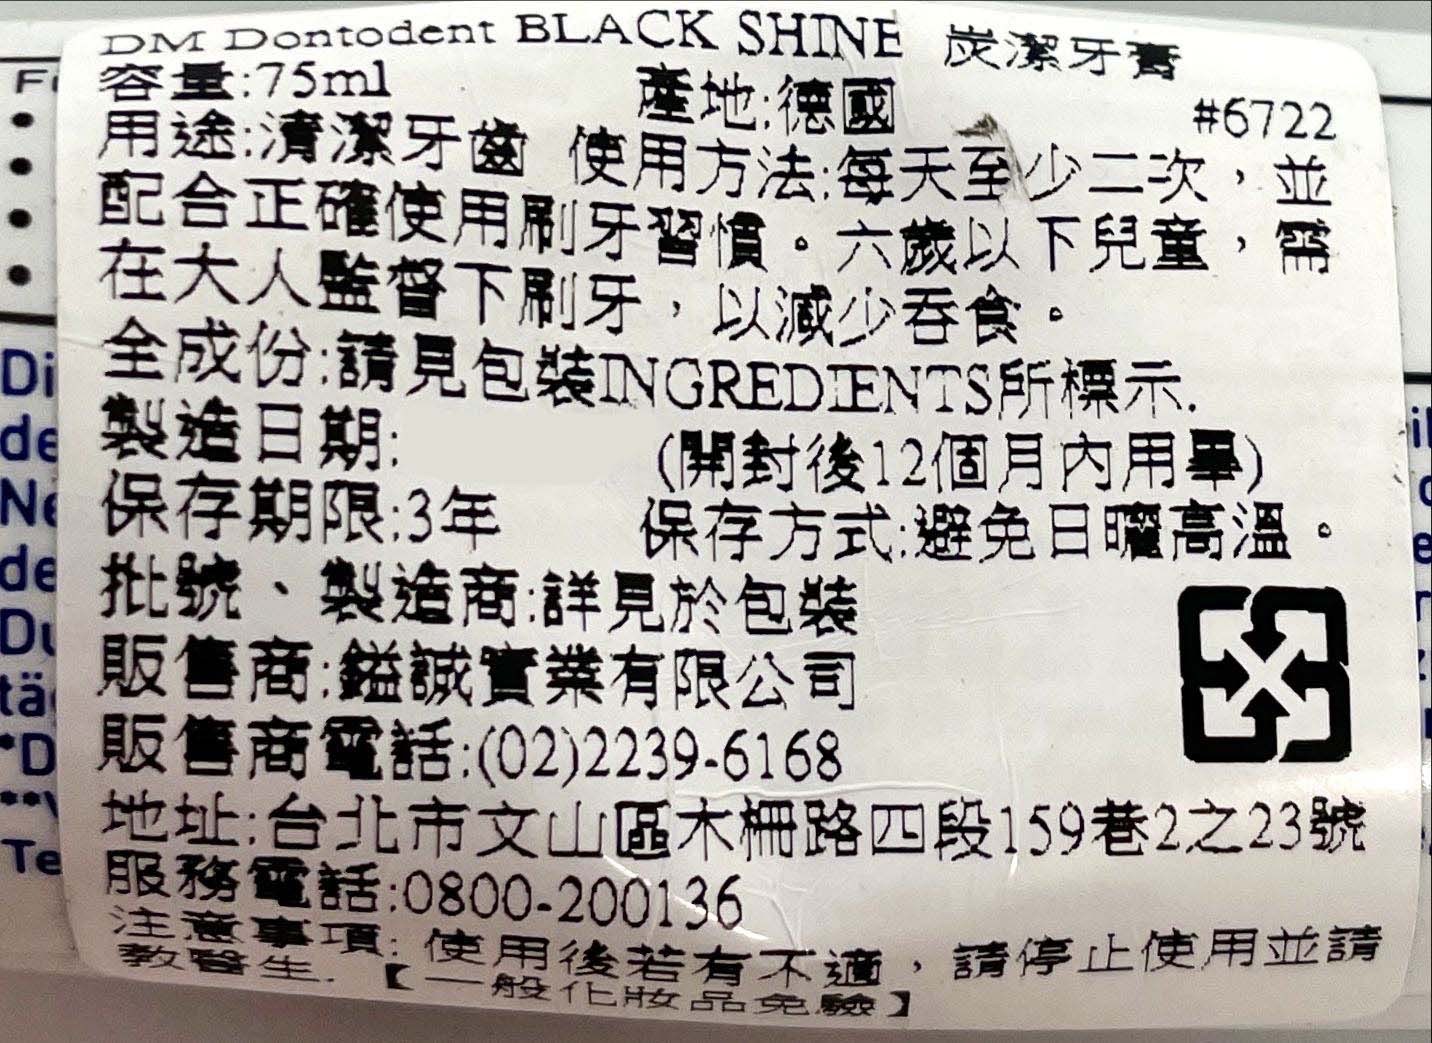 DM Dontodent BLACK SHINE 炭潔牙膏
容量:75ml 產地:德國 #6722
用途:清潔牙齒 使用方法:每天至少二次，並
配合正確使用刷牙習慣。六歲以下兒童，需
在大人監督下刷牙，以減少吞食。
全成份:請見包裝INGREDIENTS所標示.
製造日期: (開封後12個月內用畢)
保存期限:3年 保存方式:避免日曬高溫。
批號、製造商:詳見於包裝
販售商:鎰誠實業有限公司
販售商電話:(02)2239-6168
地址:台北市文山區木柵路四段159巷2之23號
服務電話:0800-200136
注意事項: 使用後若有不適，請停止使用並請
教醫生.【一般化妝品免驗】
Di
de
Ne
de
Du
tä
*D
**V
Te